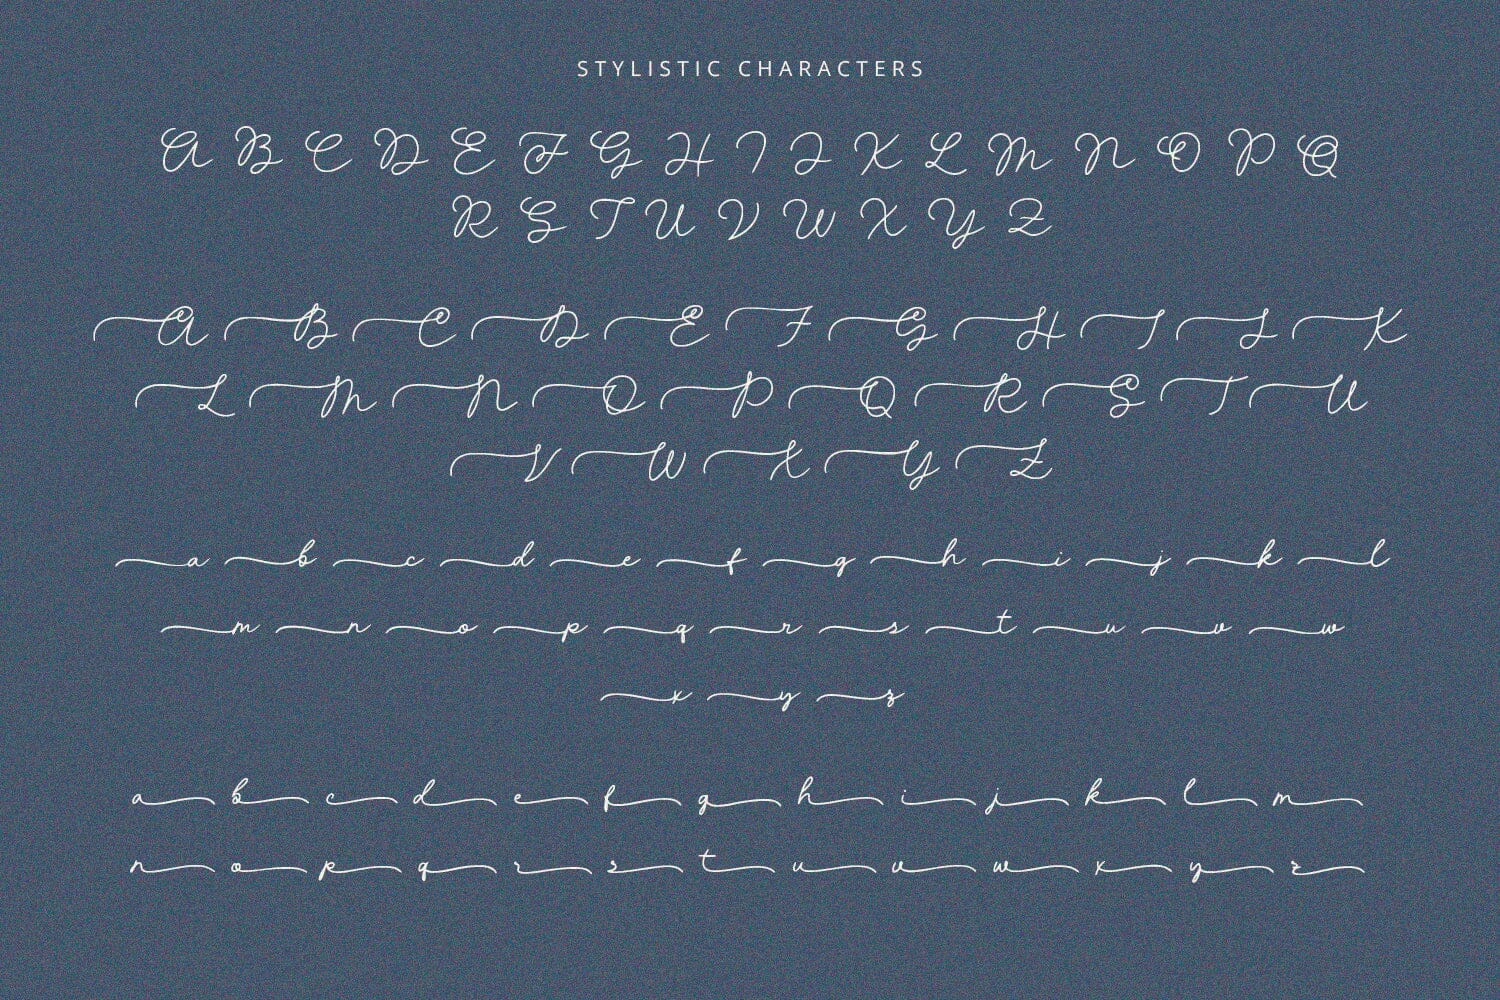 STYLISTIC CHARACTERS
A B C D E F G H I J K L M N O P Q
R S T U V W X Y Z
A B C D E F G H I J K
L M N O P Q R S T U
V W X Y Z
a b c d e f g h i j k l
m n o p q r s t u v w
x y z
a b c d e f g h i j k l m
n o p q r s t u v w x y z